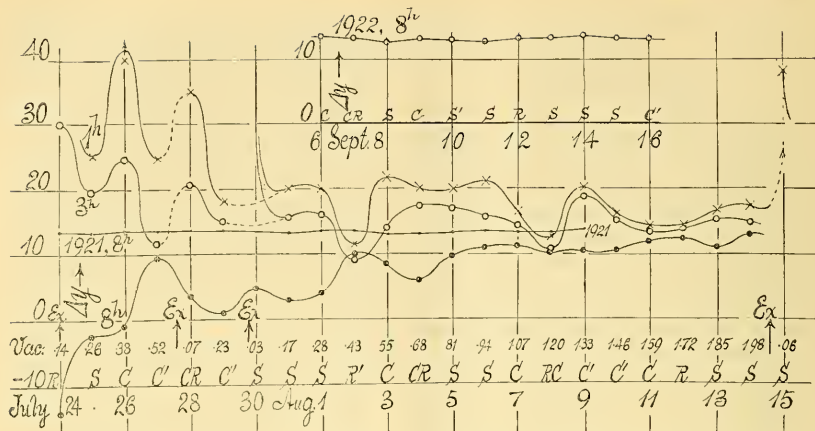 1922, 8h
40
10
Δy →
30
1h
0 C CR S C S' S R S S S C'
6 Sept. 8 10 12 14 16
20
3h
1921, 8h
1921
10
Δy →
0 Ex 8h Ex Ex Ex
Vac: .14 .26 .38 .52 .07 .23 .03 .17 .28 .43 .55 .68 .81 .94 1.07 1.20 1.33 1.46 1.59 1.72 1.85 1.98 .06
-10 R S C C' CR C' S S S R' C CR S S C RC C' C' C R S S S
July 24 26 28 30 Aug. 1 3 5 7 9 11 13 15